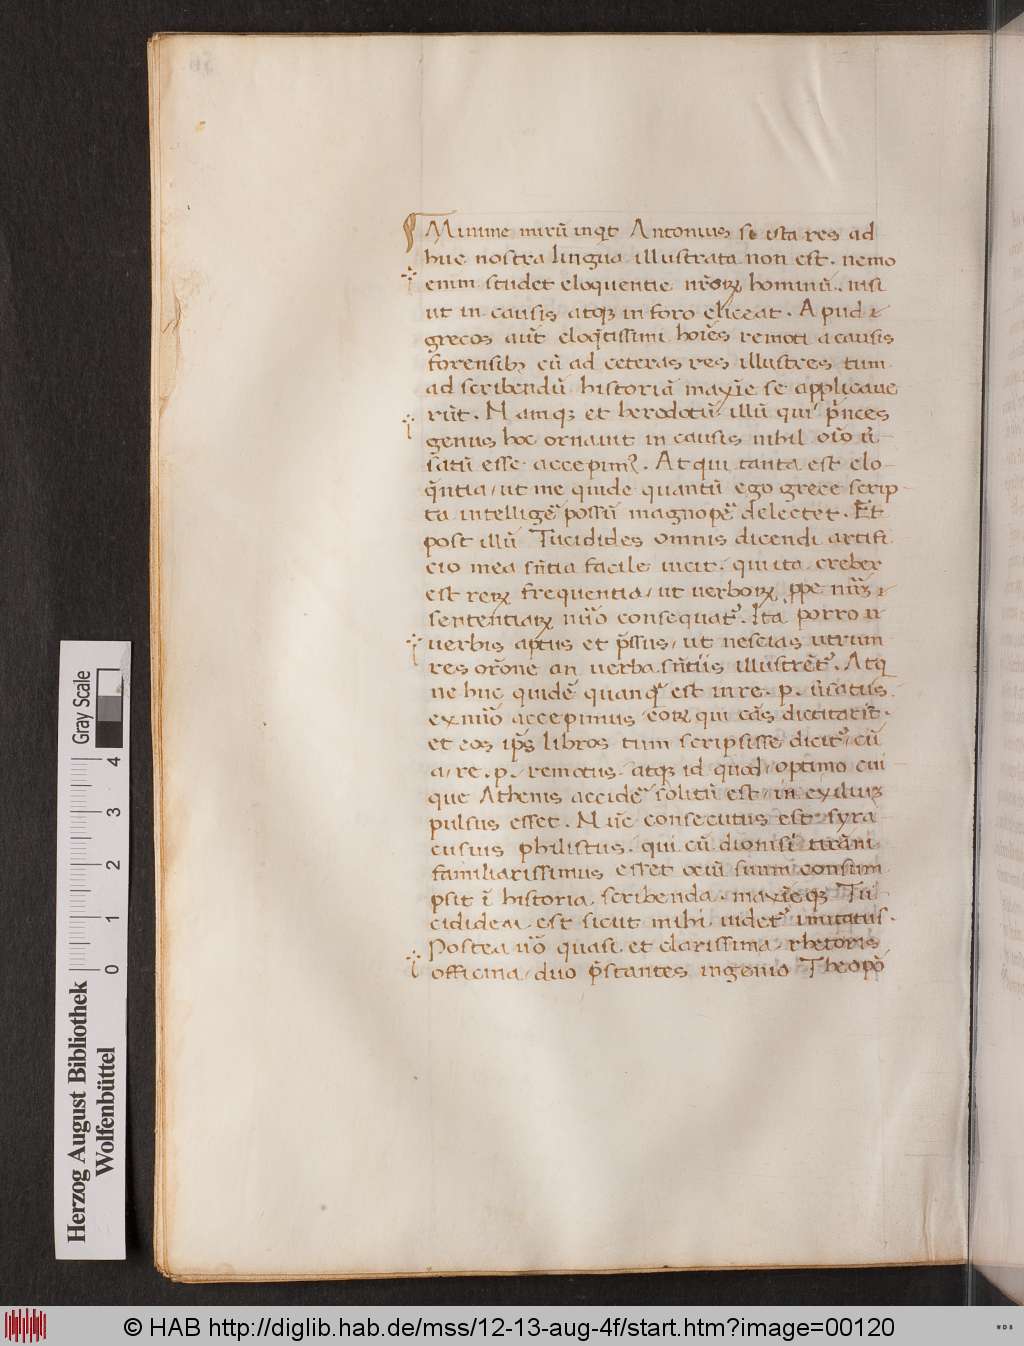 Minime mirū inqt Antonius si ista res ad
huc nostra lingua illustrata non est. nemo
enim studet eloquentie nr̄oꝝ hominū. nisi
ut in causis atqꝫ in foro eliceat. Apud
grecos aūt eloq̄tissimi hoīes remoti a causis
forensibꝫ cū ad ceteras res illustres tum
ad scribendū historiā maxīe se applicaue
rūt. Namqꝫ et herodotū illū qui p̄nces
genus hoc ornauit in causis nihil oīo ū
satū esse accepimꝰ. Atqui tanta est elo
q̄ntia, ut me quide quantū ego grece scrip
ta intelligē possū magnopē delectet. Et
post illū Tucidides omnis dicendi artifi
cio mea sn̄tia facile uicit. qui ita creber
est reꝝ frequentia, ut uerboꝝ ꝓpe nūū
sententiaꝝ nūo consequatꝰ. Ita porro u
uerbis aptus et p̄ssus, ut nescias utrum
res or̄one an uerba sn̄tiis illustrētꝰ. Atqꝫ
ne huc quidē quanqꝫ est in re. p. ūsatus
ex nūo accepimus eoꝝ qui cās dictitarūt.
et eos ip̄s libros tum scripsisse dicitꝰ, cū
a, re. p. remotus, atqꝫ id quod, optimo cui
que Athenis accidē solitū est, in exiliuꝫ
pulsus esset. Nūc consecutus est, syra
cusius philistus. qui cū dionisi tirāni
familiarissimus esset ociū suum consum
psit ī historia scribenda. maxīeqꝫ Tu
cididem est sicut mihi uidetꝰ imitatus.
Postea uō quasi et clarissima, rhetoris
officina, duo p̄stantes ingenio Theopō
Herzog August Bibliothek
Wolfenbüttel
Gray Scale
0 1 2 3 4
© HAB http://diglib.hab.de/mss/12-13-aug-4f/start.htm?image=00120